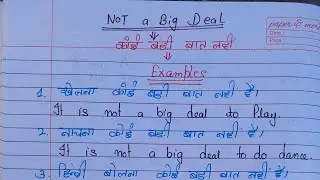 NOT a Big Deal
कोई बड़ी बात नहीं
Examples
1. खेलना कोई बड़ी बात नहीं है।
It is not a big deal to Play.
2. नाचना कोई बड़ी बात नहीं है।
It is not a big deal to do dance.
3. हिन्दी बोलना कोई बड़ी बात नहीं है।